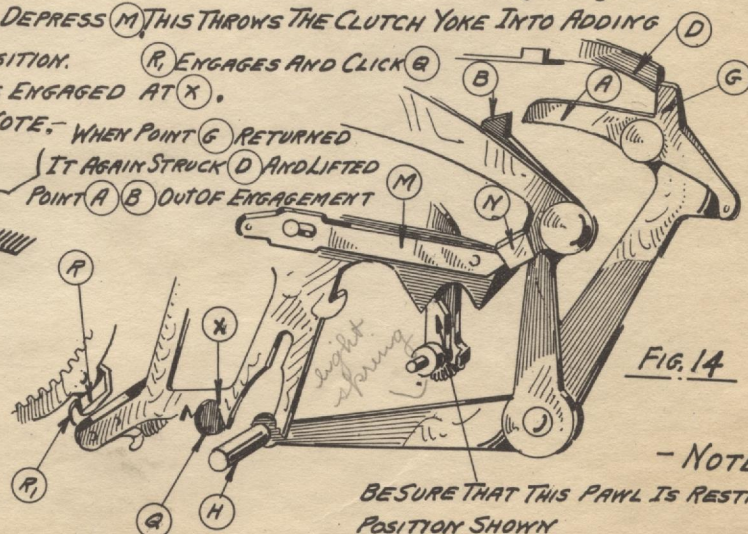 DEPRESS M THIS THROWS THE CLUTCH YOKE INTO ADDING
SITION. R1 ENGAGES AND CLICK Q
ENGAGED AT X.
OTE,- WHEN POINT G RETURNED
IT AGAIN STRUCK D AND LIFTED
POINT A B OUT OF ENGAGEMENT
D
G
B
A
M
N
R
X1
light
spring
FIG. 14
R1
Q
H
- NOTE
BE SURE THAT THIS PAWL IS REST
POSITION SHOWN